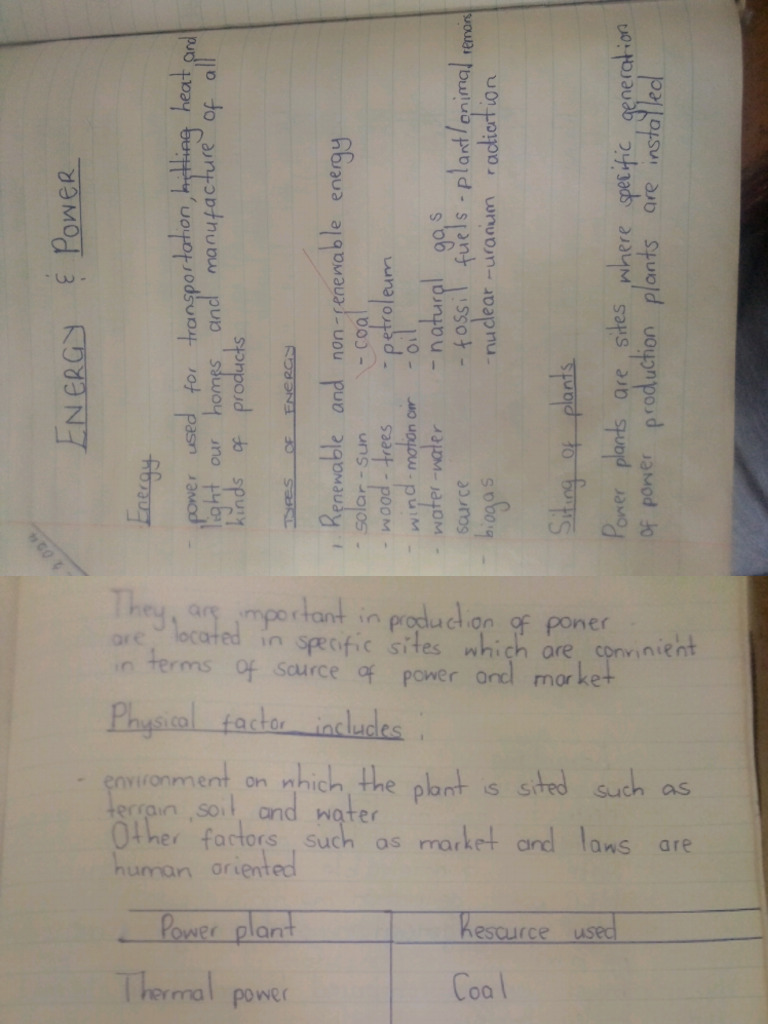 ENERGY & POWER
Energy
- power used for transportation, hitting heat and
light our homes and manufacture of all
kinds of products
TYPES OF ENERGY
1. Renewable and non-renewable energy
- solar-sun - coal
- wood-trees - petroleum
- wind-motion air - oil
- water-water - natural gas
source - fossil fuels-plant/animal remains
- biogas - nuclear-uranium radiation
Siting of plants
Power plants are sites where specific generation
of power production plants are installed
They are important in production of power
are located in specific sites which are convinient
in terms of source of power and market
Physical factor includes:
- environment on which the plant is sited such as
terrain, soil and water
Other factors such as market and laws are
human oriented
Power plant Resource used
Thermal power Coal